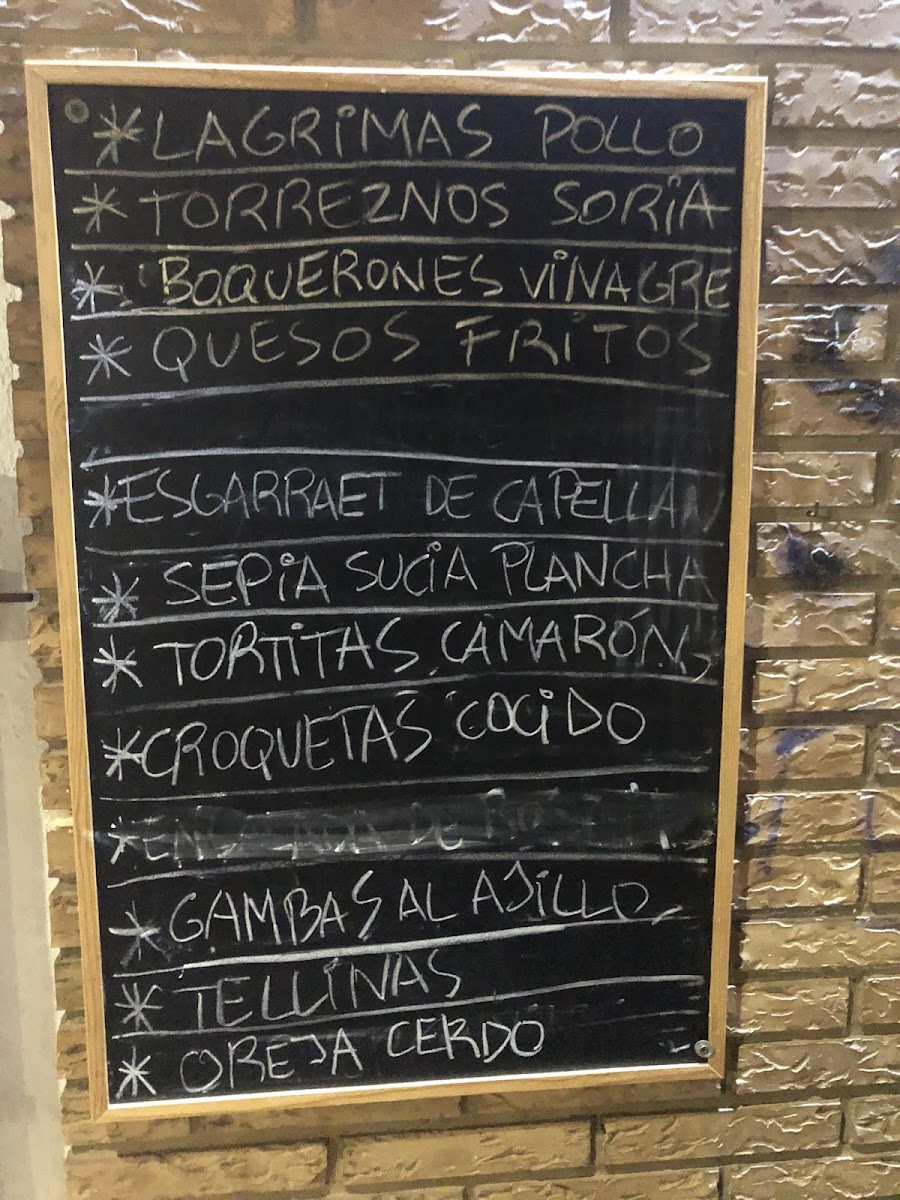 * LAGRiMAS POLLO
* TORREZNOS SORiA
* BOQUERONES ViNAGRE
* QUESOS FRiTOS
* ESGARRAET DE CAPELLAN
* SEPiA SUCiA PLANCHA
* TORTiTAS CAMARÓN
* CROQUETAS COCiDO
* ENSALADA DE
* GAMBAS AL AJiLLO
* TELLiNAS
* OREJA CERDO